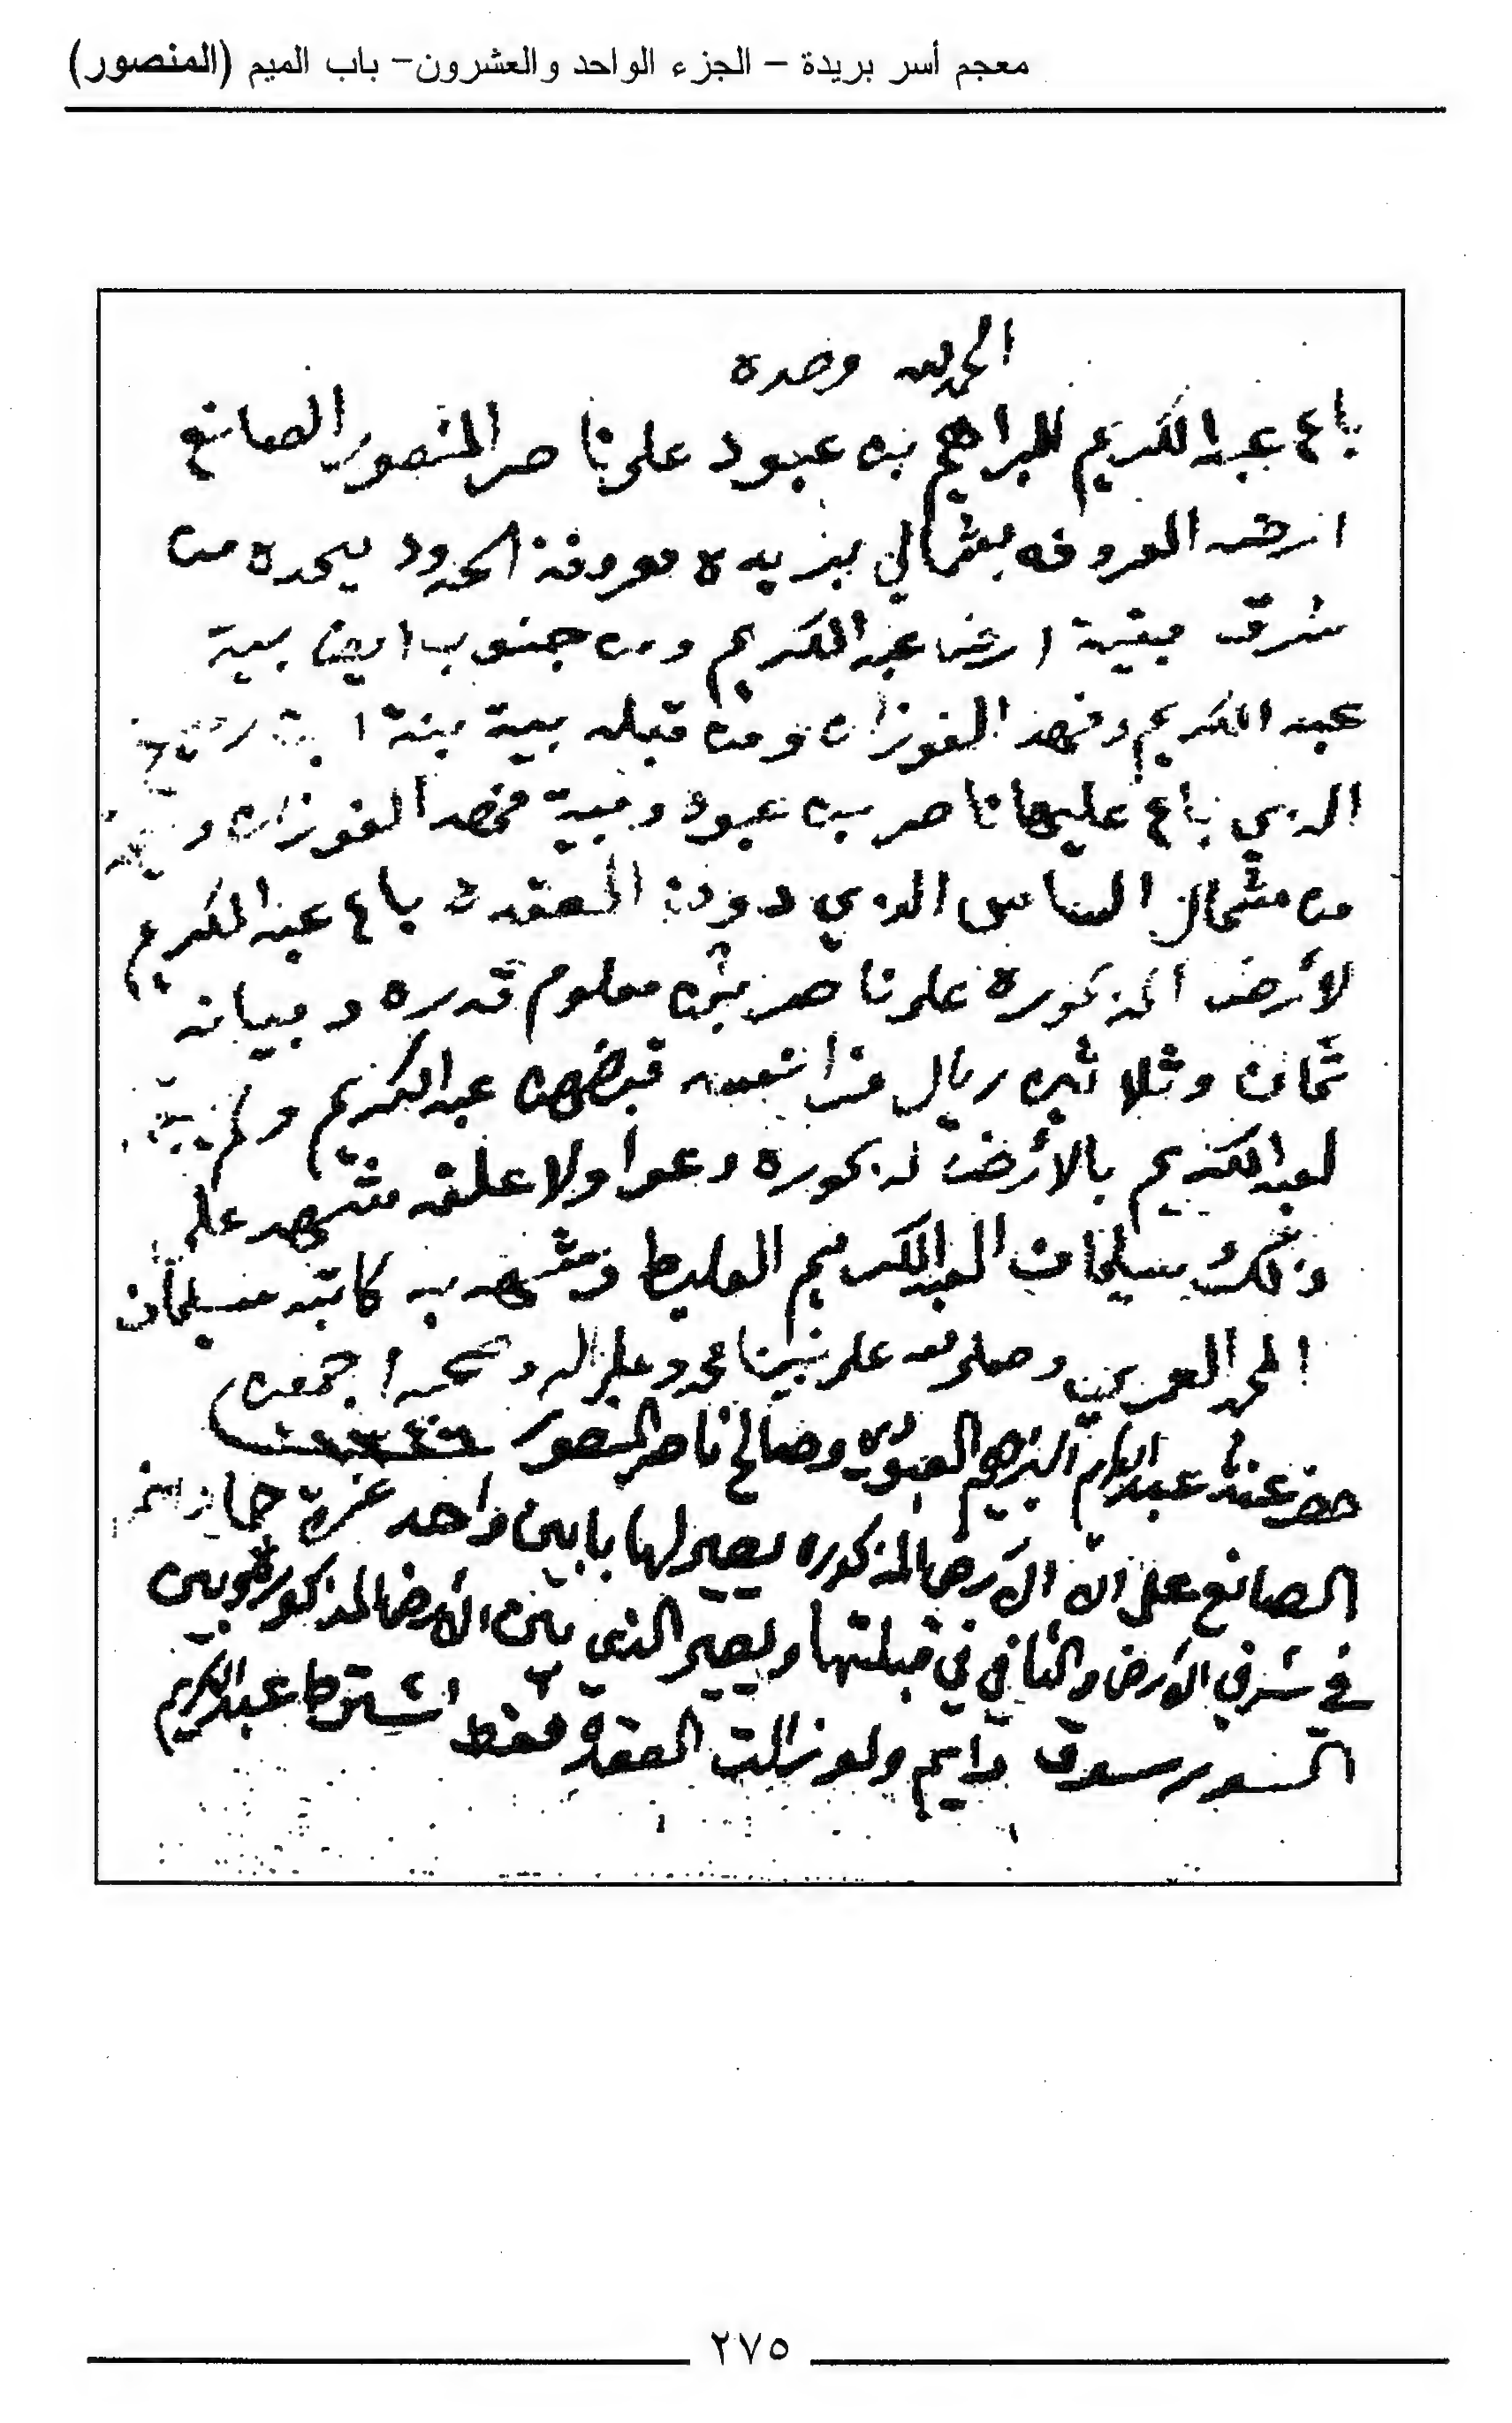 معجم أسر بريدة – الجزء الواحد والعشرون– باب الميم (المنصور)
الحمدلله وحده
باع عبدالكريم البراهيم بن عبود على ناصر المنصور الصانع
ارضه المعروفه بشمالي بريده معروفة الحدود يحده من
شرق بقية ارض عبدالكريم ومن جنوب ايضا بية
عبد الكريم وفهد الفوزان ومن قبله بية بنة
الذي باع عليها ناصر بن عبود وبية فهد الفوزان و
من شمال الساس الذي دون العقدة باع عبدالكريم
لأرض المذكورة على ناصر بثمن معلوم قدره وبيانه
ثمان وثلاثين ريال فرانسه قبضهن عبدالكريم ولم يبق
لعبدالكريم بالأرض لمذكورة دعوا ولا علقه شهد على
ذلك سليمان العبدالكريم العليط وشهد به كاتبه سليمان
المحمد العمري وصلى الله على نبينا محمد وعلى اله وصحبه اجمعين
حضر عندنا عبدالكريم البراهيم العبود وصالح ناصر المنصور
الصانع على ان الأرض المذكوره يصير لها بابين واحد
في شرقي الأرض والثاني في قبلتها ويصير الذي بين الأرض المذكورة وبين
السور سوق دايم ولو زالت العقدة فقط اشترط عبدالكريم
٢٧٥